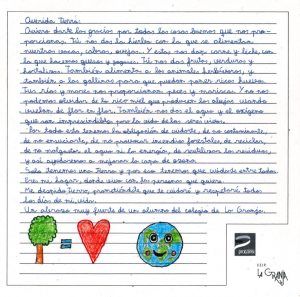 Querida Tierra:
Quiero darte las gracias por todas las cosas buenas que nos pro-
porcionas. Tú nos das la hierba con la que se alimentan
nuestras vacas, cabras, ovejas. Y estas nos dan carne y leche, con
la que hacemos quesos y yogures. Tú nos das frutas, verduras y
hortalizas. También alimentas a los animales herbívoros, y
también a las gallinas para que puedan poner ricos huevos.
Tus ríos y mares nos proporcionan peces y mariscos. Y no nos
podemos olvidar de la rica miel que producen las abejas cuando
vuelan de flor en flor. También nos das el agua y el oxígeno
que son imprescindibles para la vida de los seres vivos.
Por todo esto tenemos la obligación de cuidarte, de no contaminarte,
de no ensuciarte, de no provocar incendios forestales, de reciclar,
de no malgastar el agua ni la energía, de reutilizar los residuos,
y así ayudaremos a mejorar la capa de ozono.
Solo tenemos una Tierra y por eso tenemos que cuidarla entre todos.
Eres mi hogar, donde vivo con las personas que quiero.
Me despido Tierra, prometiéndote que te cuidaré y respetaré todos
los días de mi vida.
Un abrazo muy fuerte de un alumno del colegio de La Granja.
=
proyde
CEIP
La GRANJA